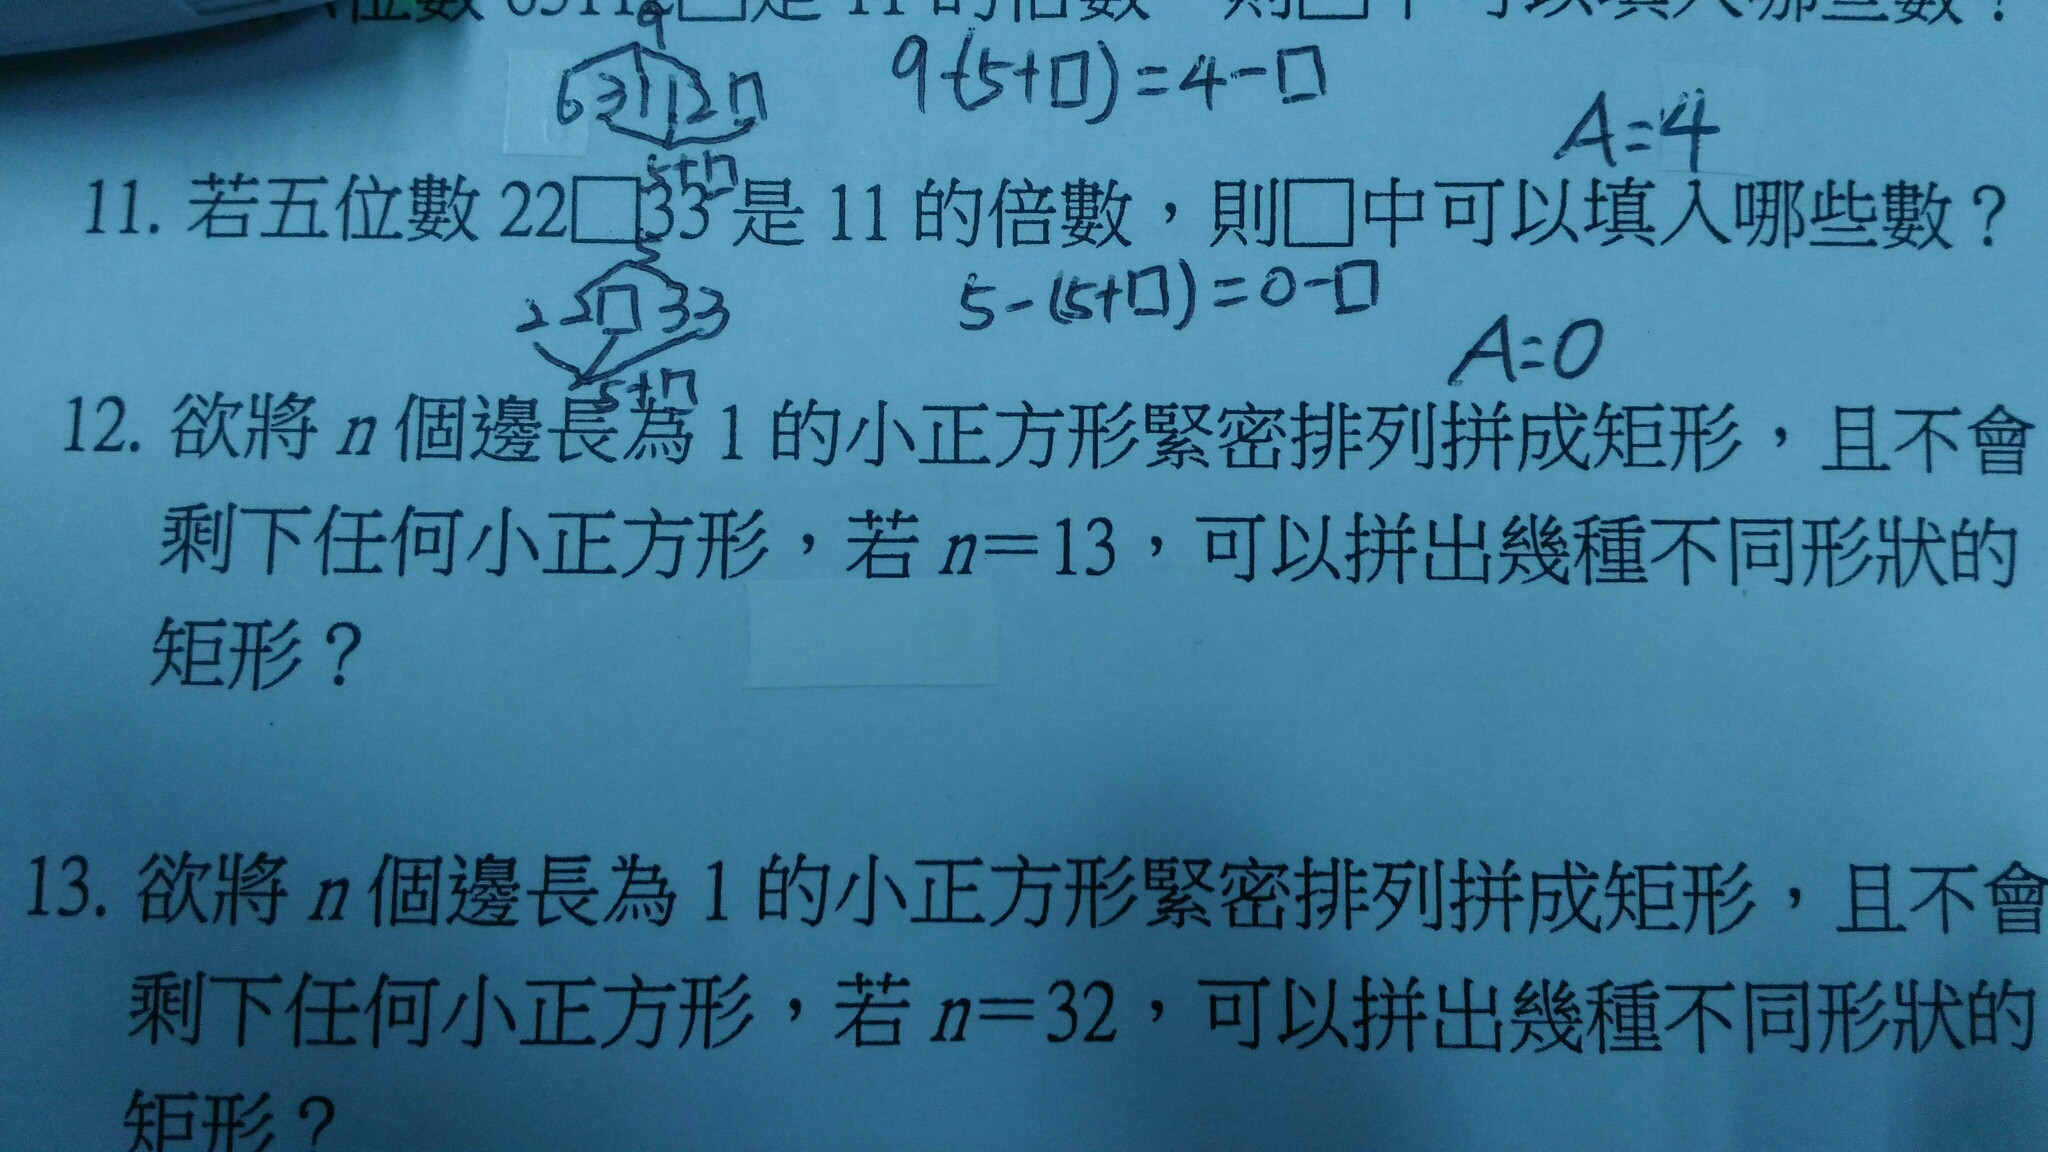 位數 63112□是 11 的倍數，則□中可以填入哪些數？
9
6 3 1 1 2 □
5+□
9-(5+□)=4-□
A=4
11. 若五位數 22□33 是 11 的倍數，則□中可以填入哪些數？
5
2 2 □ 3 3
5+□
5-(5+□)=0-□
A=0
12. 欲將 n 個邊長為 1 的小正方形緊密排列拼成矩形，且不會
剩下任何小正方形，若 n＝13，可以拼出幾種不同形狀的
矩形？
13. 欲將 n 個邊長為 1 的小正方形緊密排列拼成矩形，且不會
剩下任何小正方形，若 n＝32，可以拼出幾種不同形狀的
矩形？